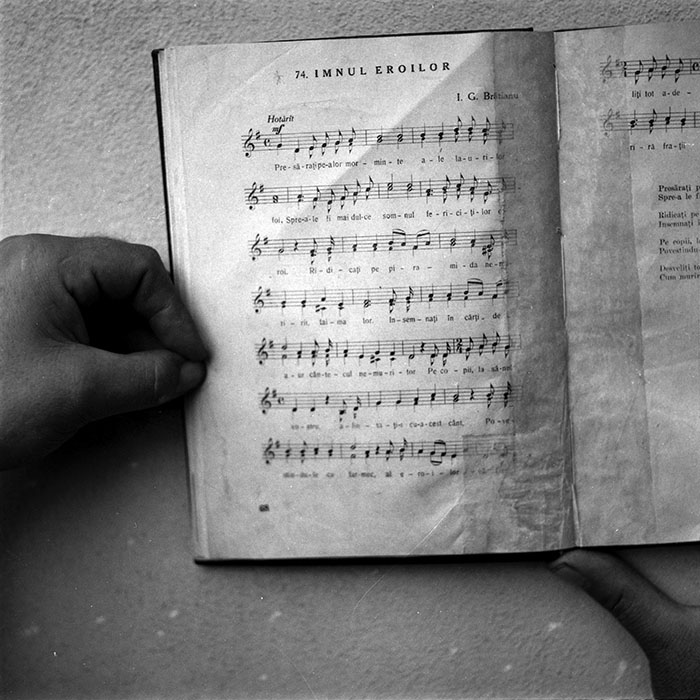 74. IMNUL EROILOR
I. G. Brătianu
Hotărît
mf
Pre-să-rațipe-alor mor-min-te a-le lau-ri-lor
foi, Spre-a-le fi mai dul-ce som-nul fe-ri-ci-ților e-
roi. Ri-di-cați pe pi-ra-mi-da ne-
ti-rit, fai-ma lor. In-sem-nați în cărți-de
a-ur cân-te-cul ne-mu-ri-tor Pe co-pii, la
cu-acest cânt, Po-ve-
far-mec, al e-ro-i-lor
liți tot a-de-
ri-ră fra-ții
Presărați
Spre-a le
Ridicați pe
Însemnați
Pe copii,
Povestindu-
Desveliți
Cum